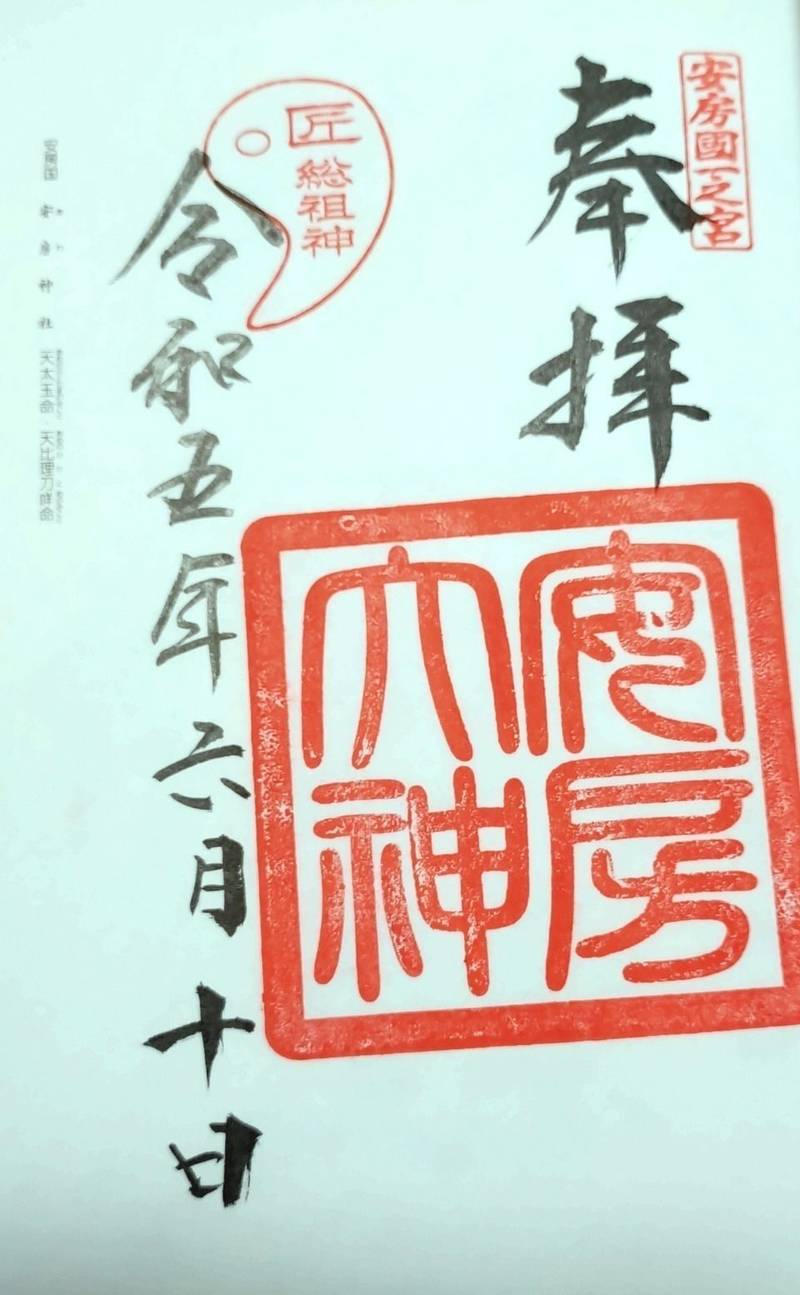 安房國一之宮
奉拝
安房
大神
匠
総祖神
令和五年六月十日
安房国 安房神社 天太玉命・天比理刀咩命